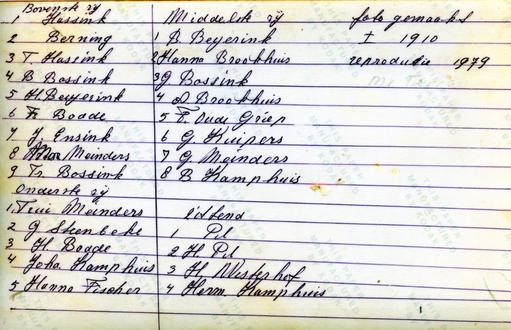 Bovenste rij
1 Hassink
2 Berning
3 T. Hassink
4 B Bossink
5 H Beyerink
6 Fr. Bodde
7 J. Ensink
8 Meinders
9 Tr. Bossink
Onderste rij
1 Trui Meinders
2 G Steenbeke
3 H. Bodde
4 Joha Kamphuis
5 Hanna Fischer
Middelste rij
1 B. Beyerink
2 Hanna Brookhuis
3 G Bossink
4 D Brookhuis
5 F. Oude Griep
6 G Kuipers
7 G Meinders
8 B Kamphuis
zittend
1 Pil
2 H Pil
3 H Westerhof
4 Herm. Kamphuis
foto gemaakt
± 1910
reproductie 1979